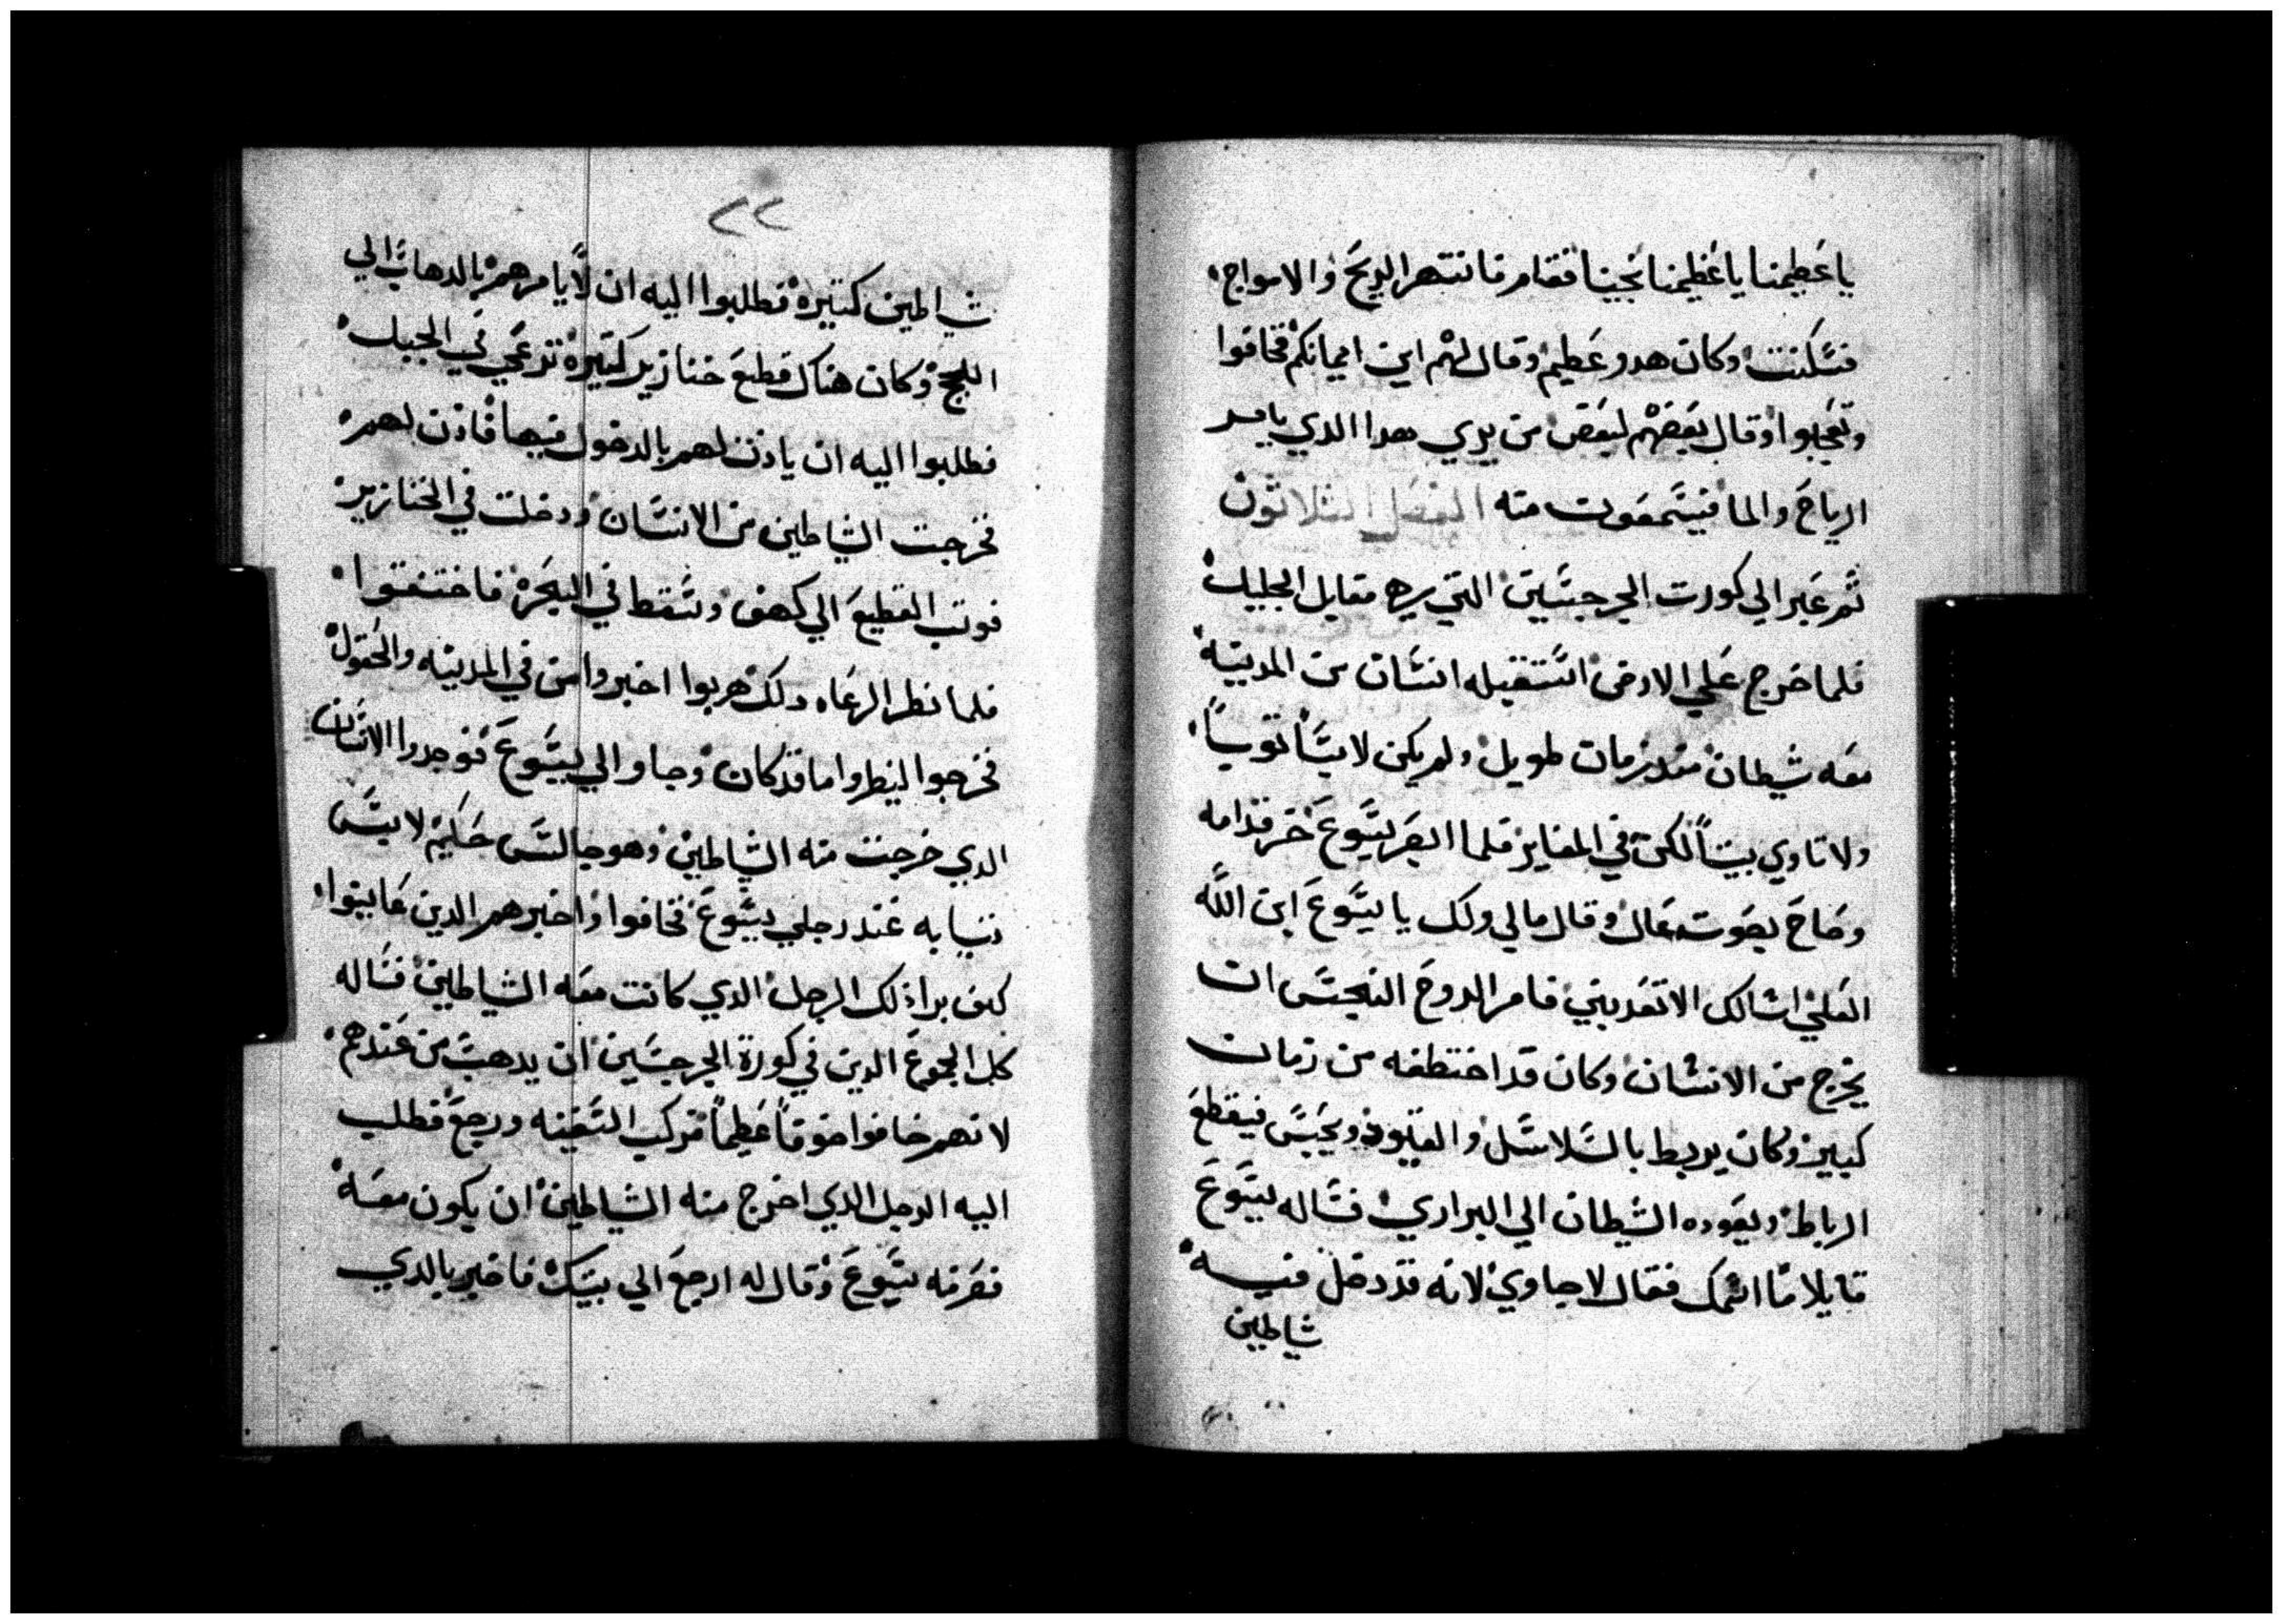 يا عظيمنا يا عظيمنا نجينا فقام فانتهر الريح والامواج
فسكنت وكان هدو عظيم وقال لهم اين ايمانكم فخافوا
وتعجبوا وقال بعضهم لبعض من يري هدا الدي يامر
الرياح والما فيسمعوت منه الفصل الثلاثون
ثم عبر الي كورت الجرجسيين التي هي مقابل الجليل
فلما خرج علي الارض استقبله انسان من المدينه
معه شيطان مند زمان طويل ولم يكن لابسا توبيا
ولا تاوي بيتا لكن في المقابر فلما ابصر يسوع خر قدامه
وصاح بصوت عال وقال مالي ولك يا يسوع ابن الله
العلي اسالك الا تعدبني فامر الروح النجس ان
يخرج من الانسان وكان قد اختطفه من زمان
كبير وكان يربط بالسلاسل والقيود ويحبس فيقطع
الرباط ويقوده الشيطان الي البراري فساله يسوع
قايلا ما اسمك فقال لاجاون لانه قد دخل فيه
شاطين
٢٢
شاطين كتيره فطلبوا اليه ان لا يامرهم بالدهاب الي
اللجج وكان هناك قطيع خنازير كتيره ترعي في الجبل
فطلبوا اليه ان يادن لهم بالدخول فيها فاذن لهم
فخرجت الشاطين من الانسان ودخلت في الخنازير
فوتب القطيع الي كهف وسقط في البحره فاختنقوا
فلما نظر الرعاه دلك هربوا اخبروا من في المدينه والحقول
فخرجوا لينطروا ما قد كان وجاوا الي يسوع فوجدوا الانسان
الدي خرجت منه الشاطين وهو جالس حكيم لابس
تيابه عند رجلي يسوع فخافوا واخبرهم الدين عاينوا
كيف برا ذلك الرجل الدي كانت معه الشياطين فساله
كل الجموع الدين في كورة الجرجسين ان يدهب من عندهم
لانهم خافوا خوفا عظيما فركب السفينه ورجع فطلب
اليه الرجل الدي اخرج منه الشياطين ان يكون معه
فصرفه يسوع وقال له ارجع الي بيتك فاخبر بالدي